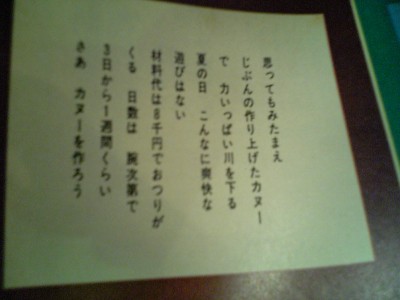 思ってもみたまえ
じぶんの作り上げたカヌー
で　力いっぱい川を下る
夏の日　こんなに爽快な
遊びはない
材料代は8千円でおつりが
くる　日数は　腕次第で
3日から1週間くらい
さあ　カヌーを作ろう